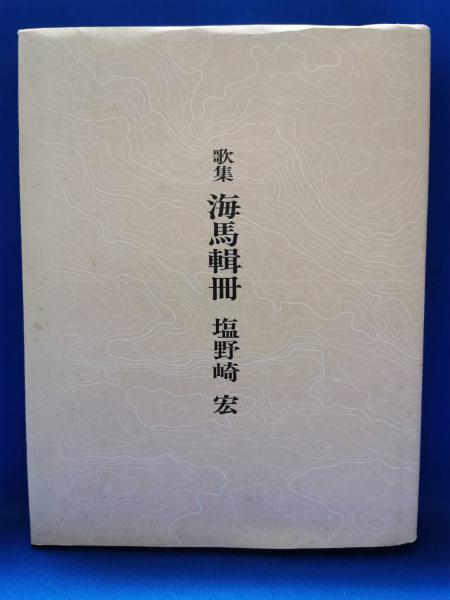 歌集 海馬輯冊 塩野崎 宏